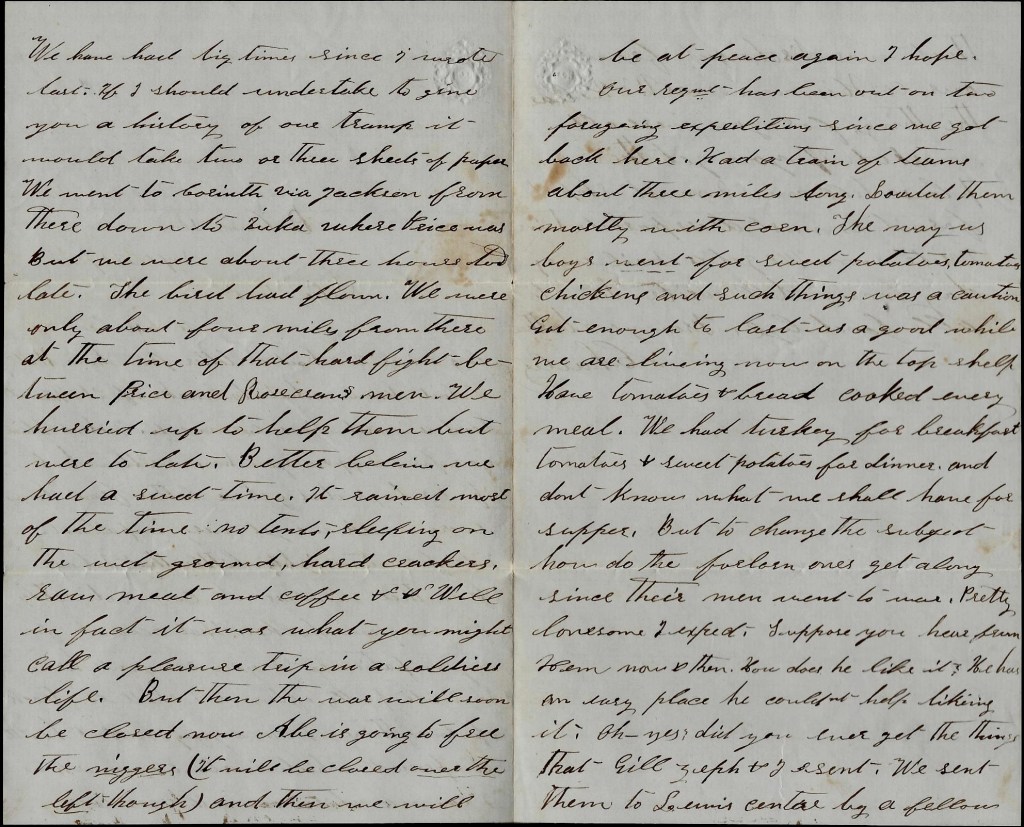 We have had big times since I wrote
last. If I should undertake to give
you a history of our tramp it
would take two or three sheets of paper
We went to Corinth via Jackson from
there down to Iuka where Price was
But we were about three hours too
late. The bird had flown. We were
only about four miles from there
at the time of that hard fight be-
tween Price and Rosecrans men. We
hurried up to help them but
were to late. Better believe we
had a sweet time. It rained most
of the time no tents, sleeping on
the wet ground, hard crackers,
raw meat and coffee & & Well
in fact it was what you might
call a pleasure trip in a soldiers
life. But then the war will soon
be closed now Abe is going to free
the niggers (it will be closed over the
left though) and then we will
be at peace again I hope.
Our regmt has been out on two
forageing expeditions since we got
back here. Had a train of teams
about three miles long. Loaded them
mostly with corn. The way us
boys went for sweet potatoes, tomatoes
chickens and such things was a caution
Got enough to last us a good while
we are living now on the top shelf
Have tomatoes & bread cooked every
meal. We had turkey for breakfast
tomatoes & sweet potatoes for dinner. and
dont know what we shall have for
supper. But to change the subject
how do the forlorn ones get along
since their men went to war. Pretty
lonesome I expect. Suppose you hear from
them now & then. How does he like it? He has
an easy place he couldnt help likeing
it. Oh yes did you ever get the things
that Gill Zeph & I sent. We sent
them to Lewis Center by a fellow